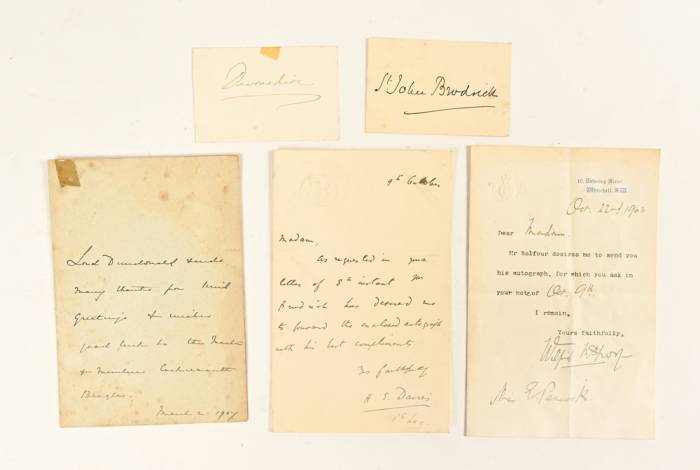 Devonshire
St John Brodrick
Lord Dundonald sends
many thanks for kind
Greetings & wishes
good luck to the Master
& members
Beagles.
March 2. 1907
9th October
Madam,
As requested in your
letter of 8th instant Mr
Brodrick has desired me
to forward the enclosed autograph
with his best compliments
Yrs faithfully
H. S. Davis
10, Downing Street,
Whitehall, S.W.
Oct. 22nd 1903
Dear Madam,
Mr Balfour desires me to send you
his autograph, for which you ask in
your note of Oct. 9th.
I remain,
Yours faithfully,
Miss E.